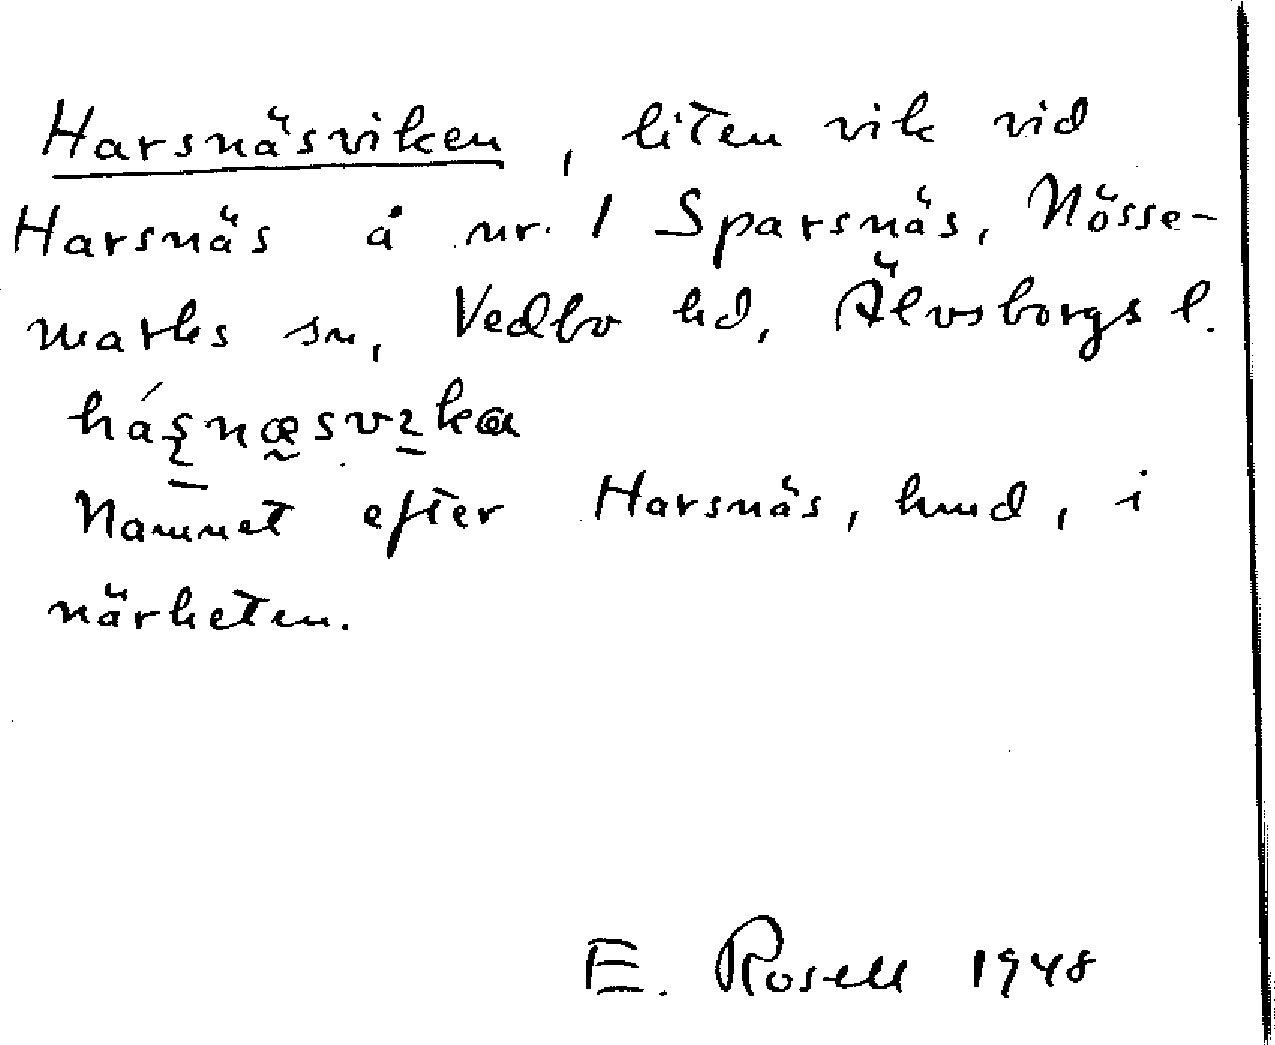 Harsnäsviken, liten vik vid
Harsnäs å nr. 1 Sparsnäs, Nösse-
marks sn, Vedbo hd, Älvsborgs l.
Namnet efter Harsnäs, hmd, i
närheten.
E. Rosell 1948